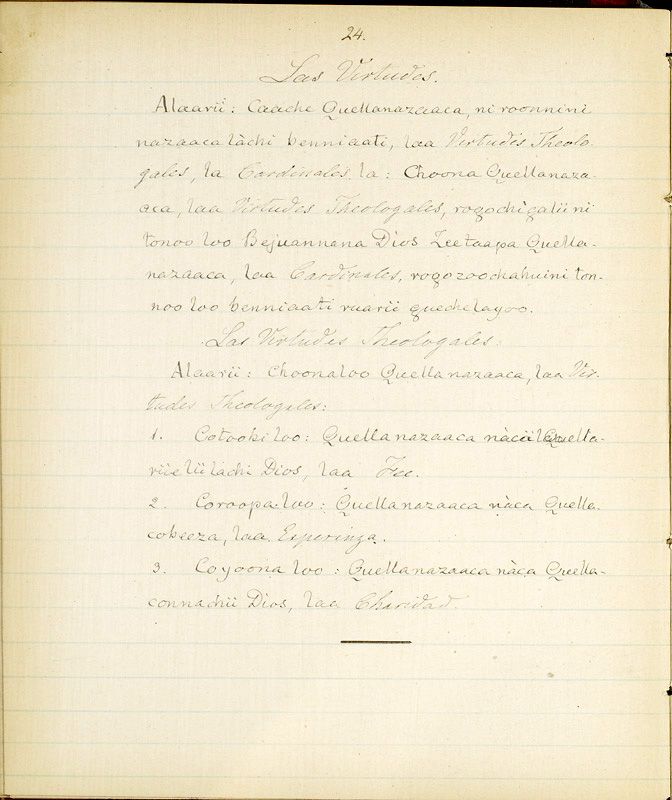 24.
Las Virtudes.
Alaarii: Caache Quellanazaaca, ni roonnini
nazaaca làchi benniaati, laa Virtudes Theolo-
gales, la Cardinales, la: Choona Quellanaza-
aca, laa Virtudes Theologales, rogochigalii ni
tonoo loo Bejuannana Dios Leetaapa Quella-
nazaaca, laa Cardinales, rogozoochahuini ton-
noo loo benniaati ruarii quechelayoo.
Las Virtudes Theologales:
Alaarii: Choonaloo Quellanazaaca, laa Vir-
tudes Theologales:
1. Cotoobi loo: Quellanazaaca nàca Quella-
riielii làchi Dios, laa Fee.
2. Coroopa loo: Quellanazaaca nàca Quella-
cobeeza, laa Esperinza.
3. Coyoona loo: Quellanazaaca nàca Quella-
connachii Dios, laa Charidad.